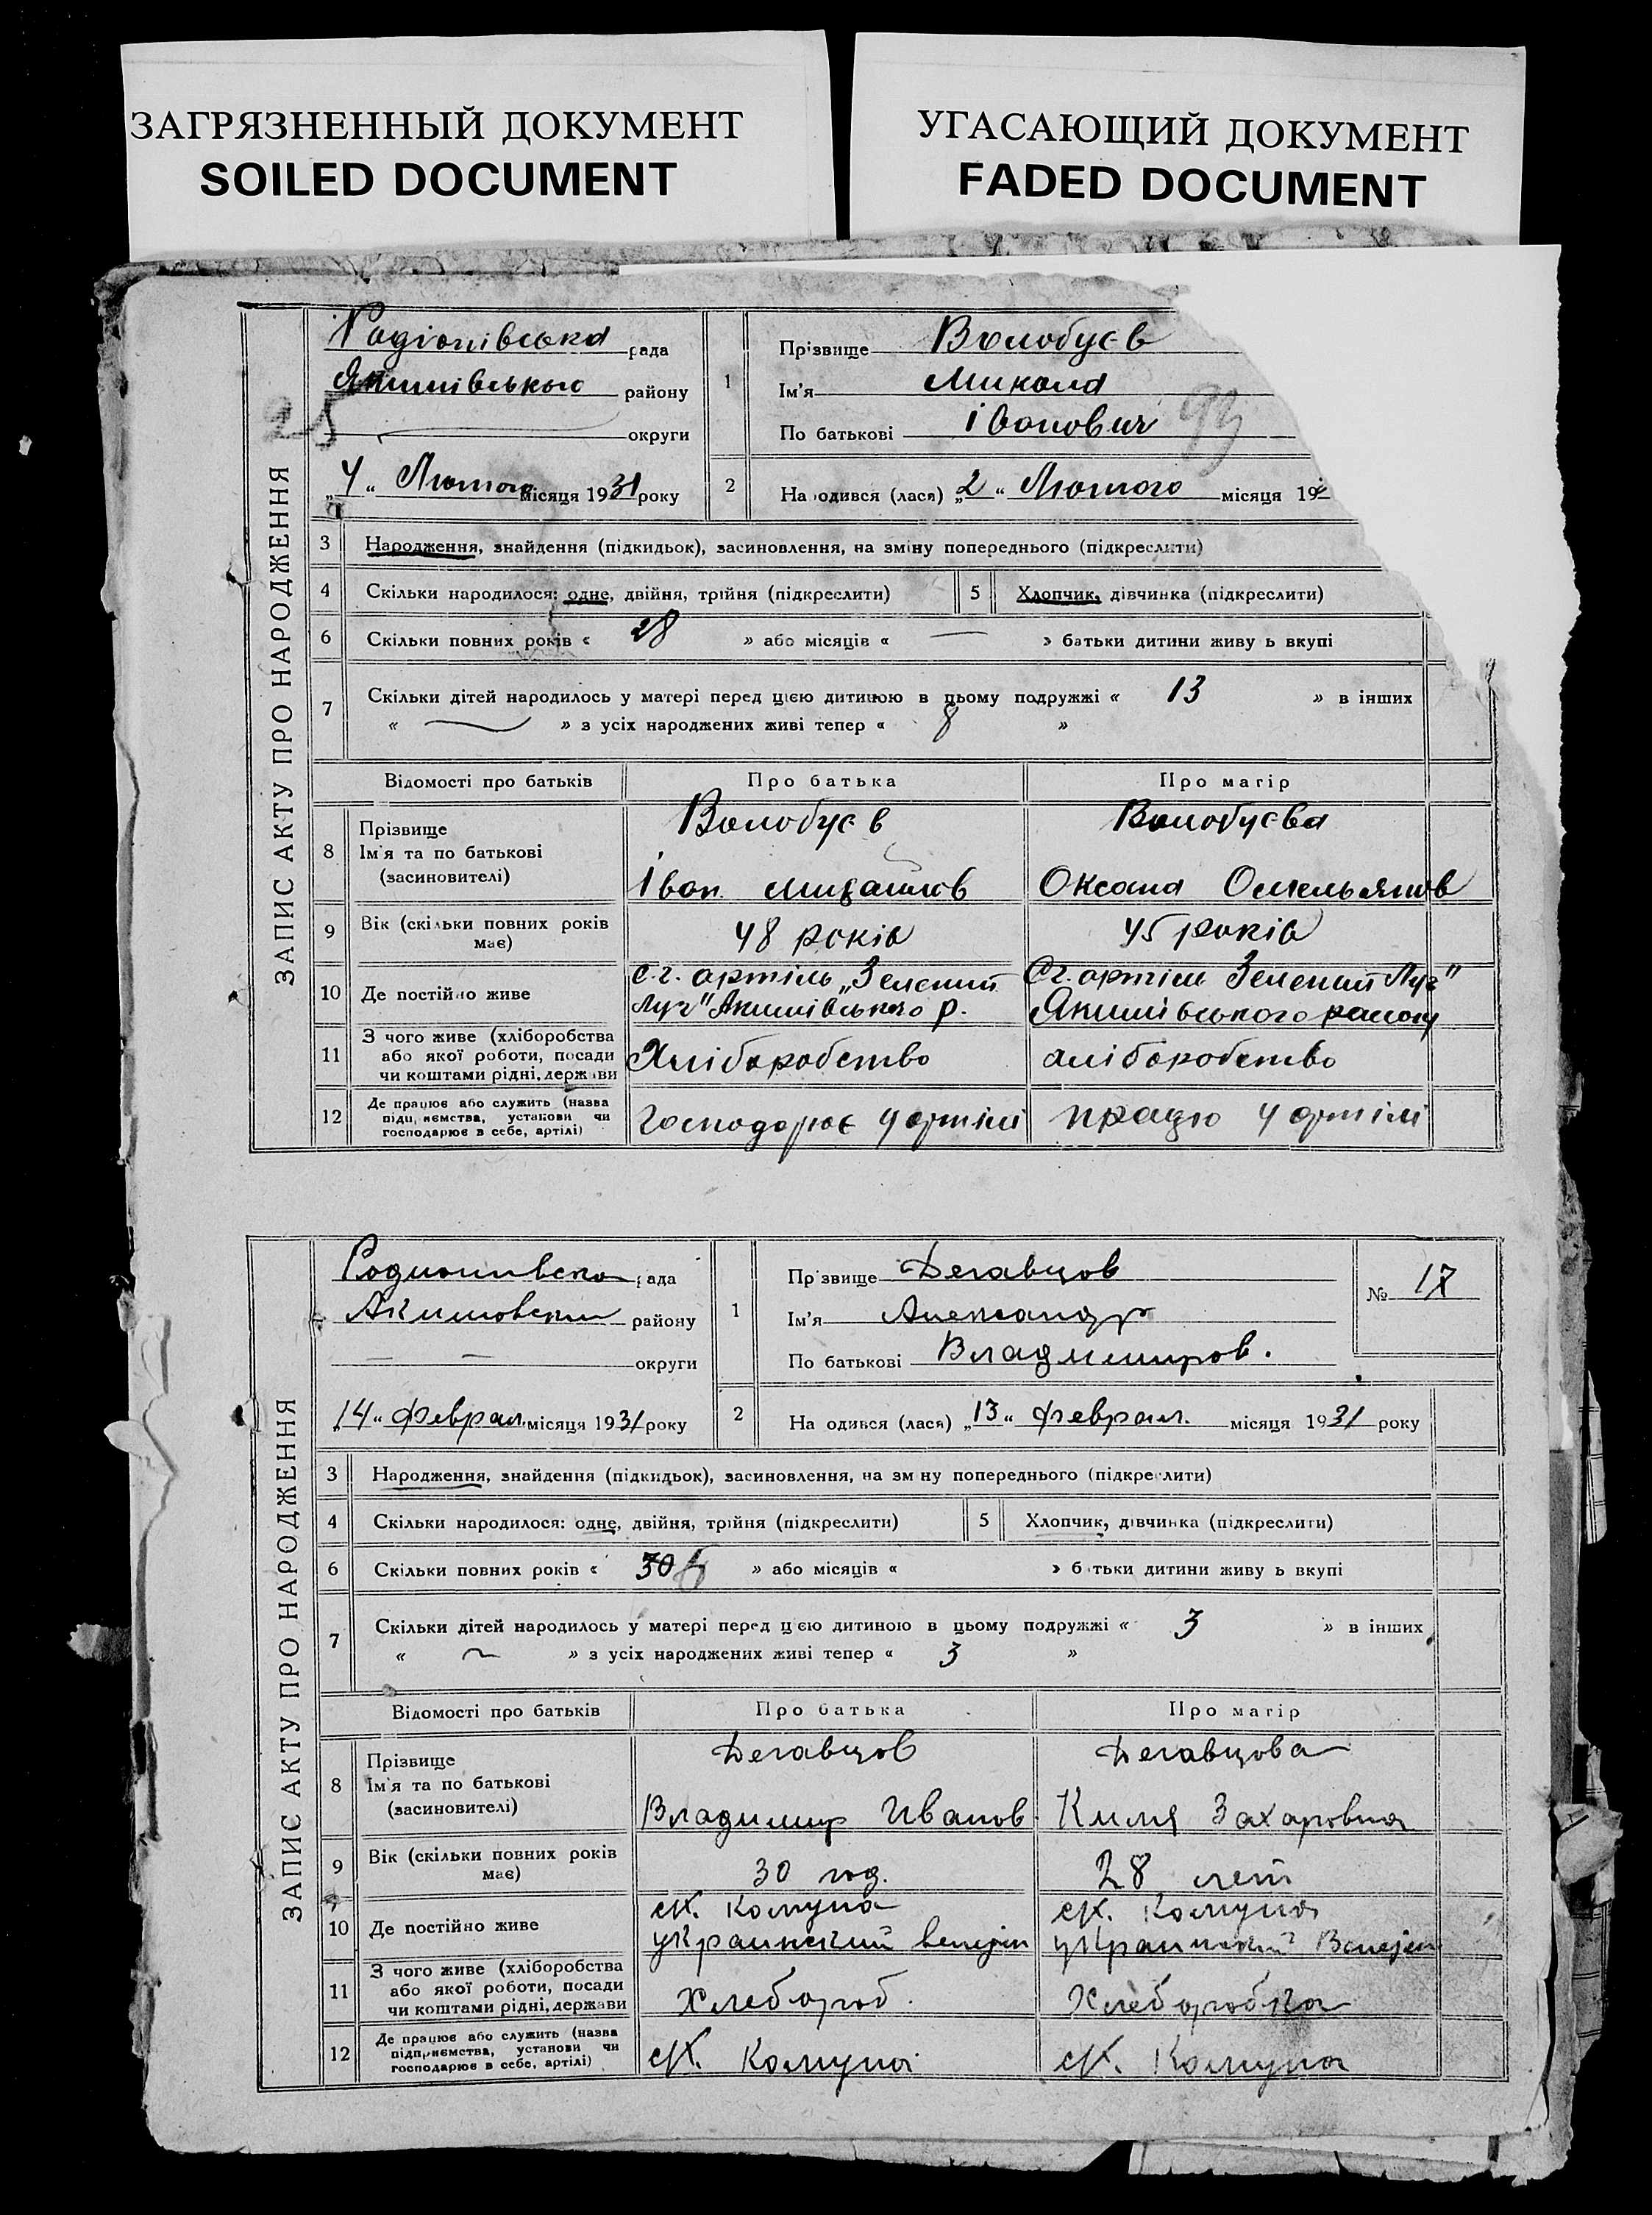 ЗАГРЯЗНЕННЫЙ ДОКУМЕНТ
SOILED DOCUMENT
УГАСАЮЩИЙ ДОКУМЕНТ
FADED DOCUMENT
ЗАПИС АКТУ ПРО НАРОДЖЕННЯ
25
Радіонівська рада
Якимівського району
округи
„4“ Лютого місяця 1931 року
1
Прізвище Волобуєв
Ім'я Микола
По батькові Іванович
99
2 На одився (лася) „2“ Лютого місяця 19
3 Народження, знайдення (підкидьок), засиновлення, на зміну попереднього (підкреслити)
4 Скільки народилося: одне, двійня, трійня (підкреслити) 5 Хлопчик, дівчинка (підкреслити)
6 Скільки повних років « 28 » або місяців « — » батьки дитини живу ь вкупі
7 Скільки дітей народилось у матері перед цією дитиною в цьому подружжі « 13 » в інших
« — » з усіх народжених живі тепер « 8 »
Відомості про батьків Про батька Про матір
8 Прізвище Ім'я та по батькові (засиновителі)
Волобуєв Волобуєва
Іван Михайлов Оксана Омельянов
9 Вік (скільки повних років має) 48 років 45 років
10 Де постійно живе
с.г. артіль „Зелений Сг. артіль Зелений Луг"
Луг" Акимівського р. Якимівського району
11 З чого живе (хліборобства або якої роботи, посади чи коштами рідні, держави
Хліборобство аліборобство
12 Де працює або служить (назва підприємства, установи чи господарює в себе, артілі)
Господарює у артілі працю у артілі
ЗАПИС АКТУ ПРО НАРОДЖЕННЯ
Родионивска рада
Акимовски району
— — округи
„14“ Феврал. місяця 1931 року
1
Пр звище Дегавцов
Ім'я Александр
По батькові Владимиров.
№ 17
2 На одився (лася) „13“ Феврал. місяця 1931 року
3 Народження, знайдення (підкидьок), засиновлення, на зм ну попереднього (підкреслити)
4 Скільки народилося: одне, двійня, трійня (підкреслити) 5 Хлопчик, дівчинка (підкреслити)
6 Скільки повних років « 30 » або місяців « » б тьки дитини живу ь вкупі
7 Скільки дітей народилось у матері перед цією дитиною в цьому подружжі « 3 » в інших
« ~ » з усіх народжених живі тепер « 3 »
Відомості про батьків Про батька Про матір
8 Прізвище Ім'я та по батькові (засиновителі)
Дегавцов Дегавцова
Владимир Иванов Захаровна
9 Вік (скільки повних років має) 30 год. 28 лет
10 Де постійно живе
сх. Комуна сх. Комуна
украинский
11 З чого живе (хліборобства або якої роботи, посади чи коштами рідні, держави
Хлебороб. Хлеборобка
12 Де працює або служить (назва підприємства, установи чи господарює в себе, артілі)
сх. Комуна сх. Комуна